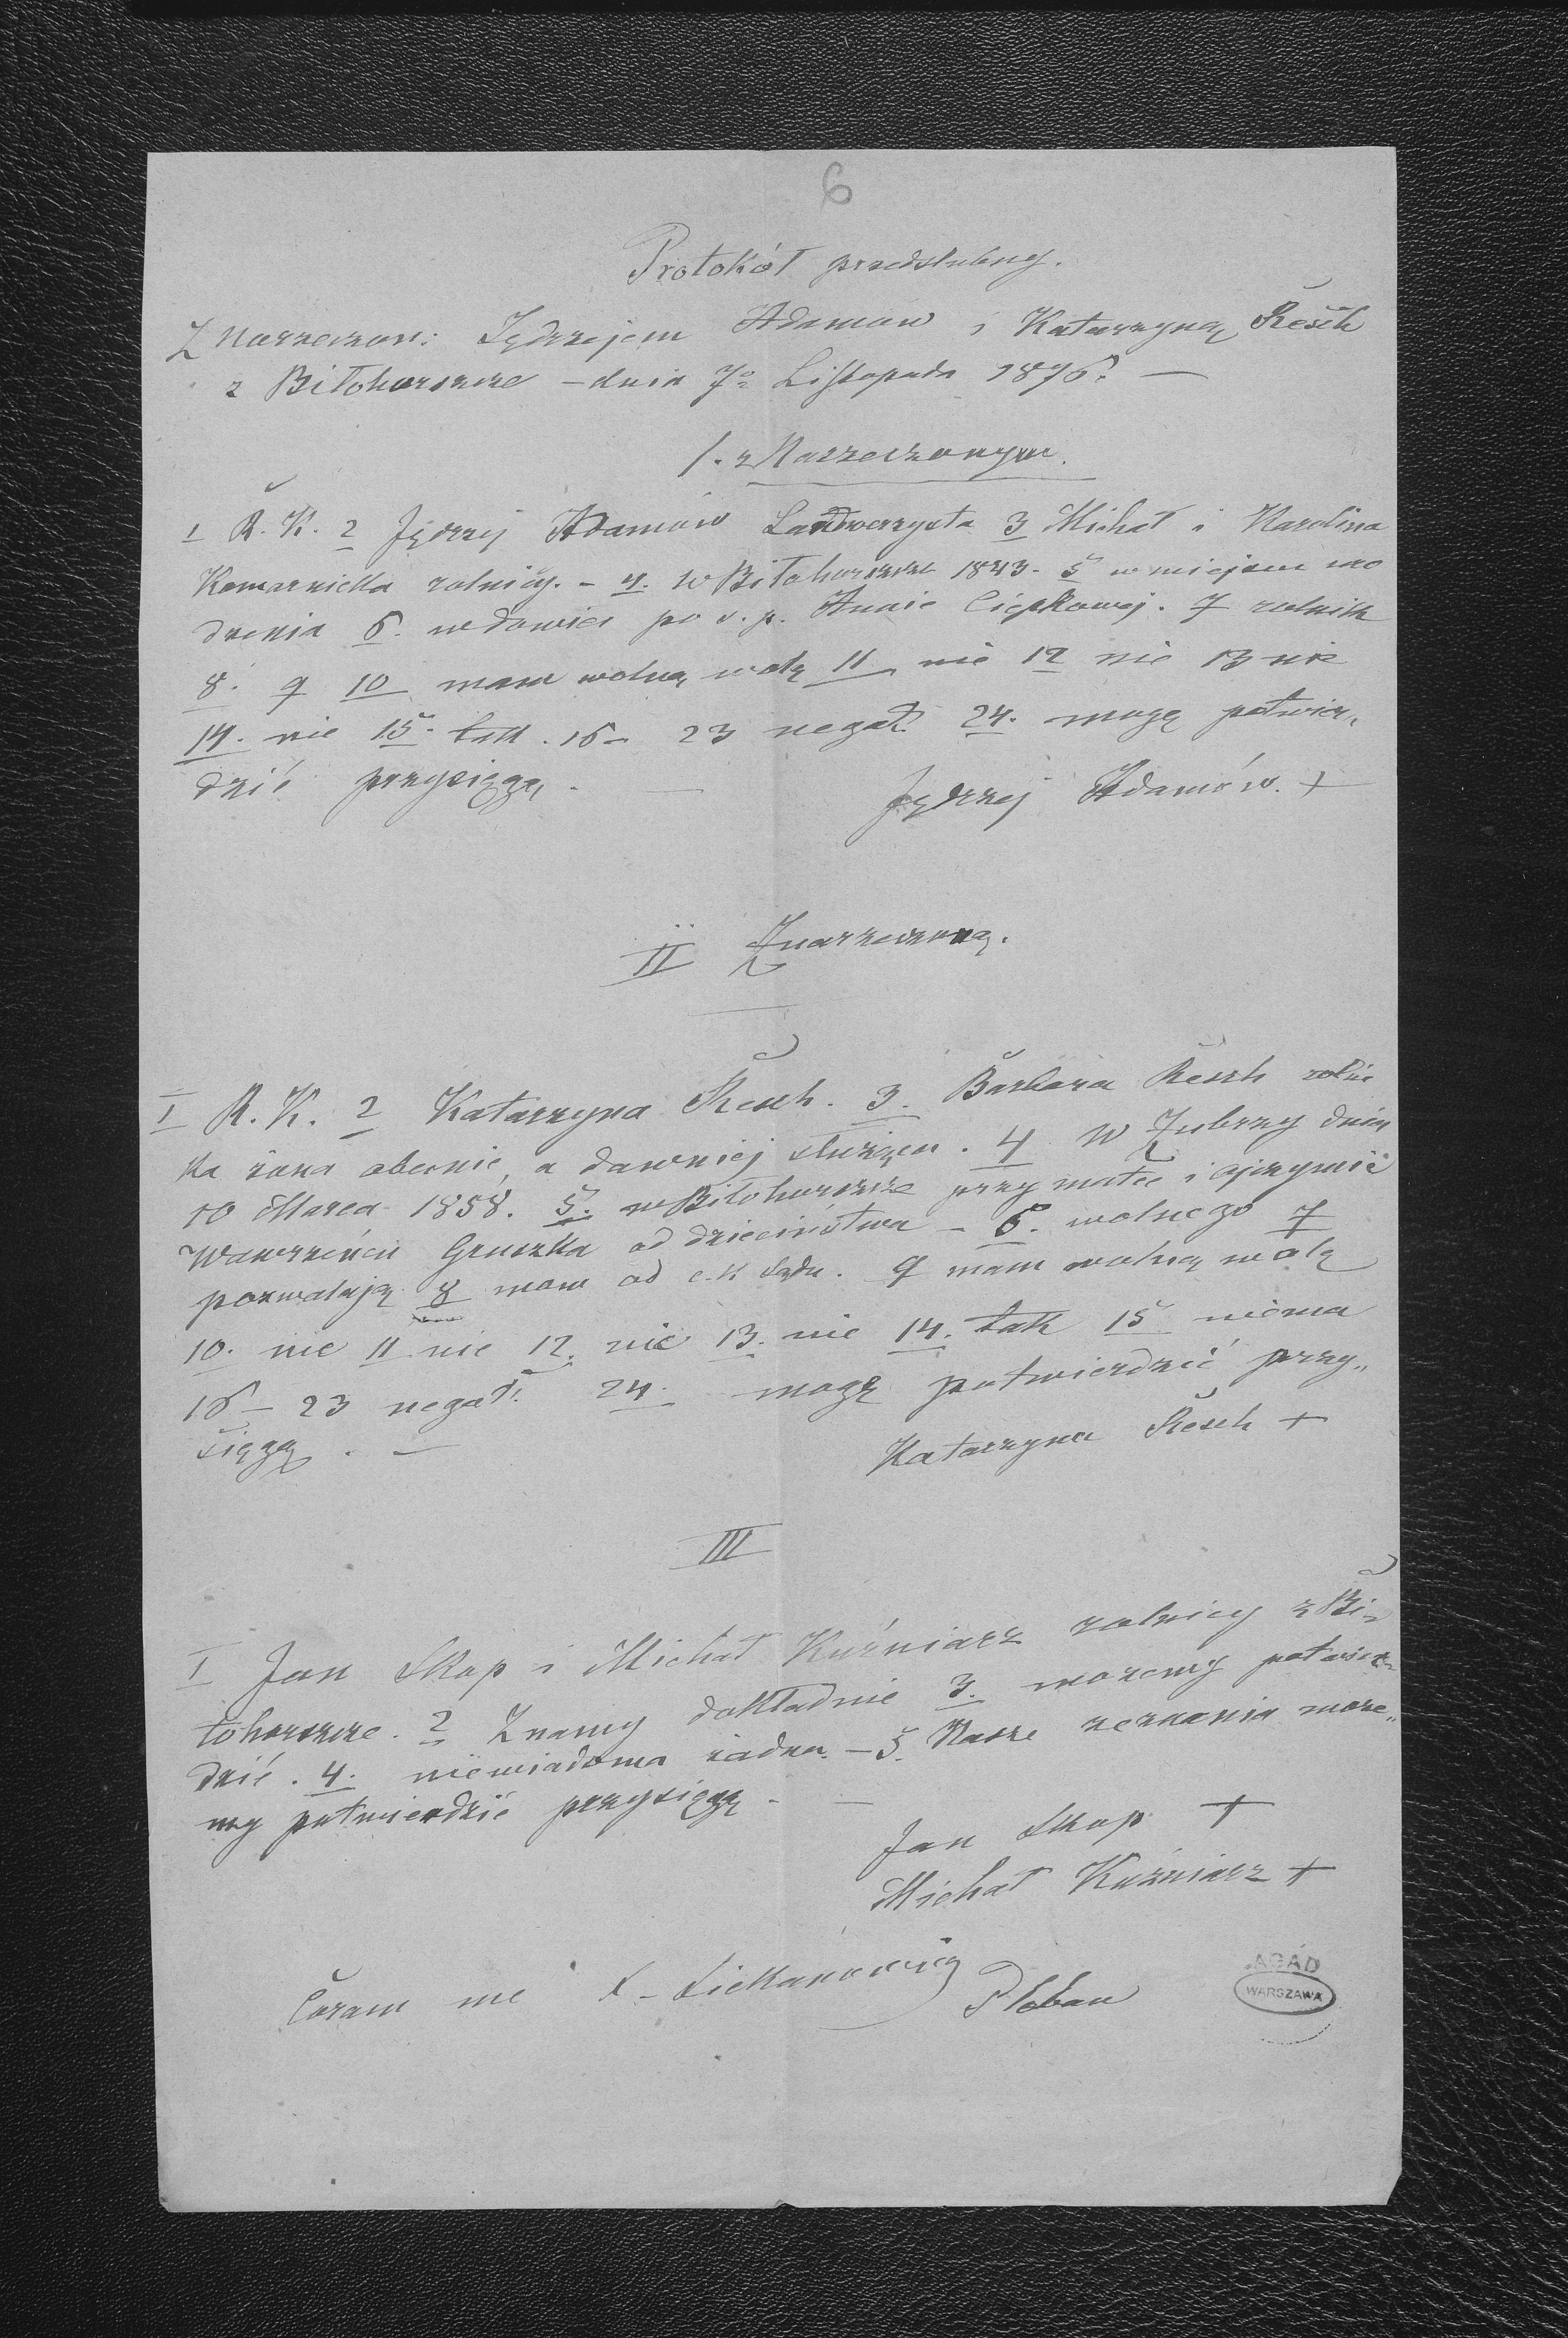 6
Protokół przedślubny.
Z Narzeczon: Jędrzejem Adamów i Katarzyną Resch
z Biłohorszcze – dnia 7º Listopada 1876. —
1. z Narzeczonym.
I R. K. 2 Jędrzej Adamów Landwerzysta 3 Michał i Karolina
Komarnicka rolnicy. – 4. w Biłohorszcze 1843. 5 w miejscu uro
dzenia 6. wdowiec po ś. p. Annie Ciepkowej. 7 rolnik
8. 9 10 mam wolną wolę 11 nie 12 nie 13 nie
14. nie 15. tak. 16 – 23 negat. 24. mogę potwier„
dzić przysięgą. —
Jędrzej Adamów. +
II Z narzeczoną.
I R. K. 2 Katarzyna Resch. 3. Barbara Resch rolni
ka żona obecnie, a dawniej służąca. 4 w Zubrzy dnia
10 Marca 1858. 5. w Biłohorszcze przy matce i ojczymie
Wawrzeńcu Gruszka od dzieciństwa – 6. wolnego 7
pozwalają 8 mam od c. k Sądu. 9 mam wolną wolę
10. nie 11 nie 12. nie 13. nie 14. tak 15 niema
16 – 23 negat. 24. mogę potwierdzić przy„
sięgą. —
Katarzyna Resch +
III
I Jan Skop i Michał Kuźniarz rolnicy z Bi„
łohorszcze. 2 Znamy dokładnie 3. możemy potwier„
dzić. 4. niewiadoma żadna. – 5. Nasze zeznania może„
my potwierdzić przysięgą. —
Jan Skop +
Michał Kuźniarz +
Coram me
Pleban
AGAD
WARSZAWA